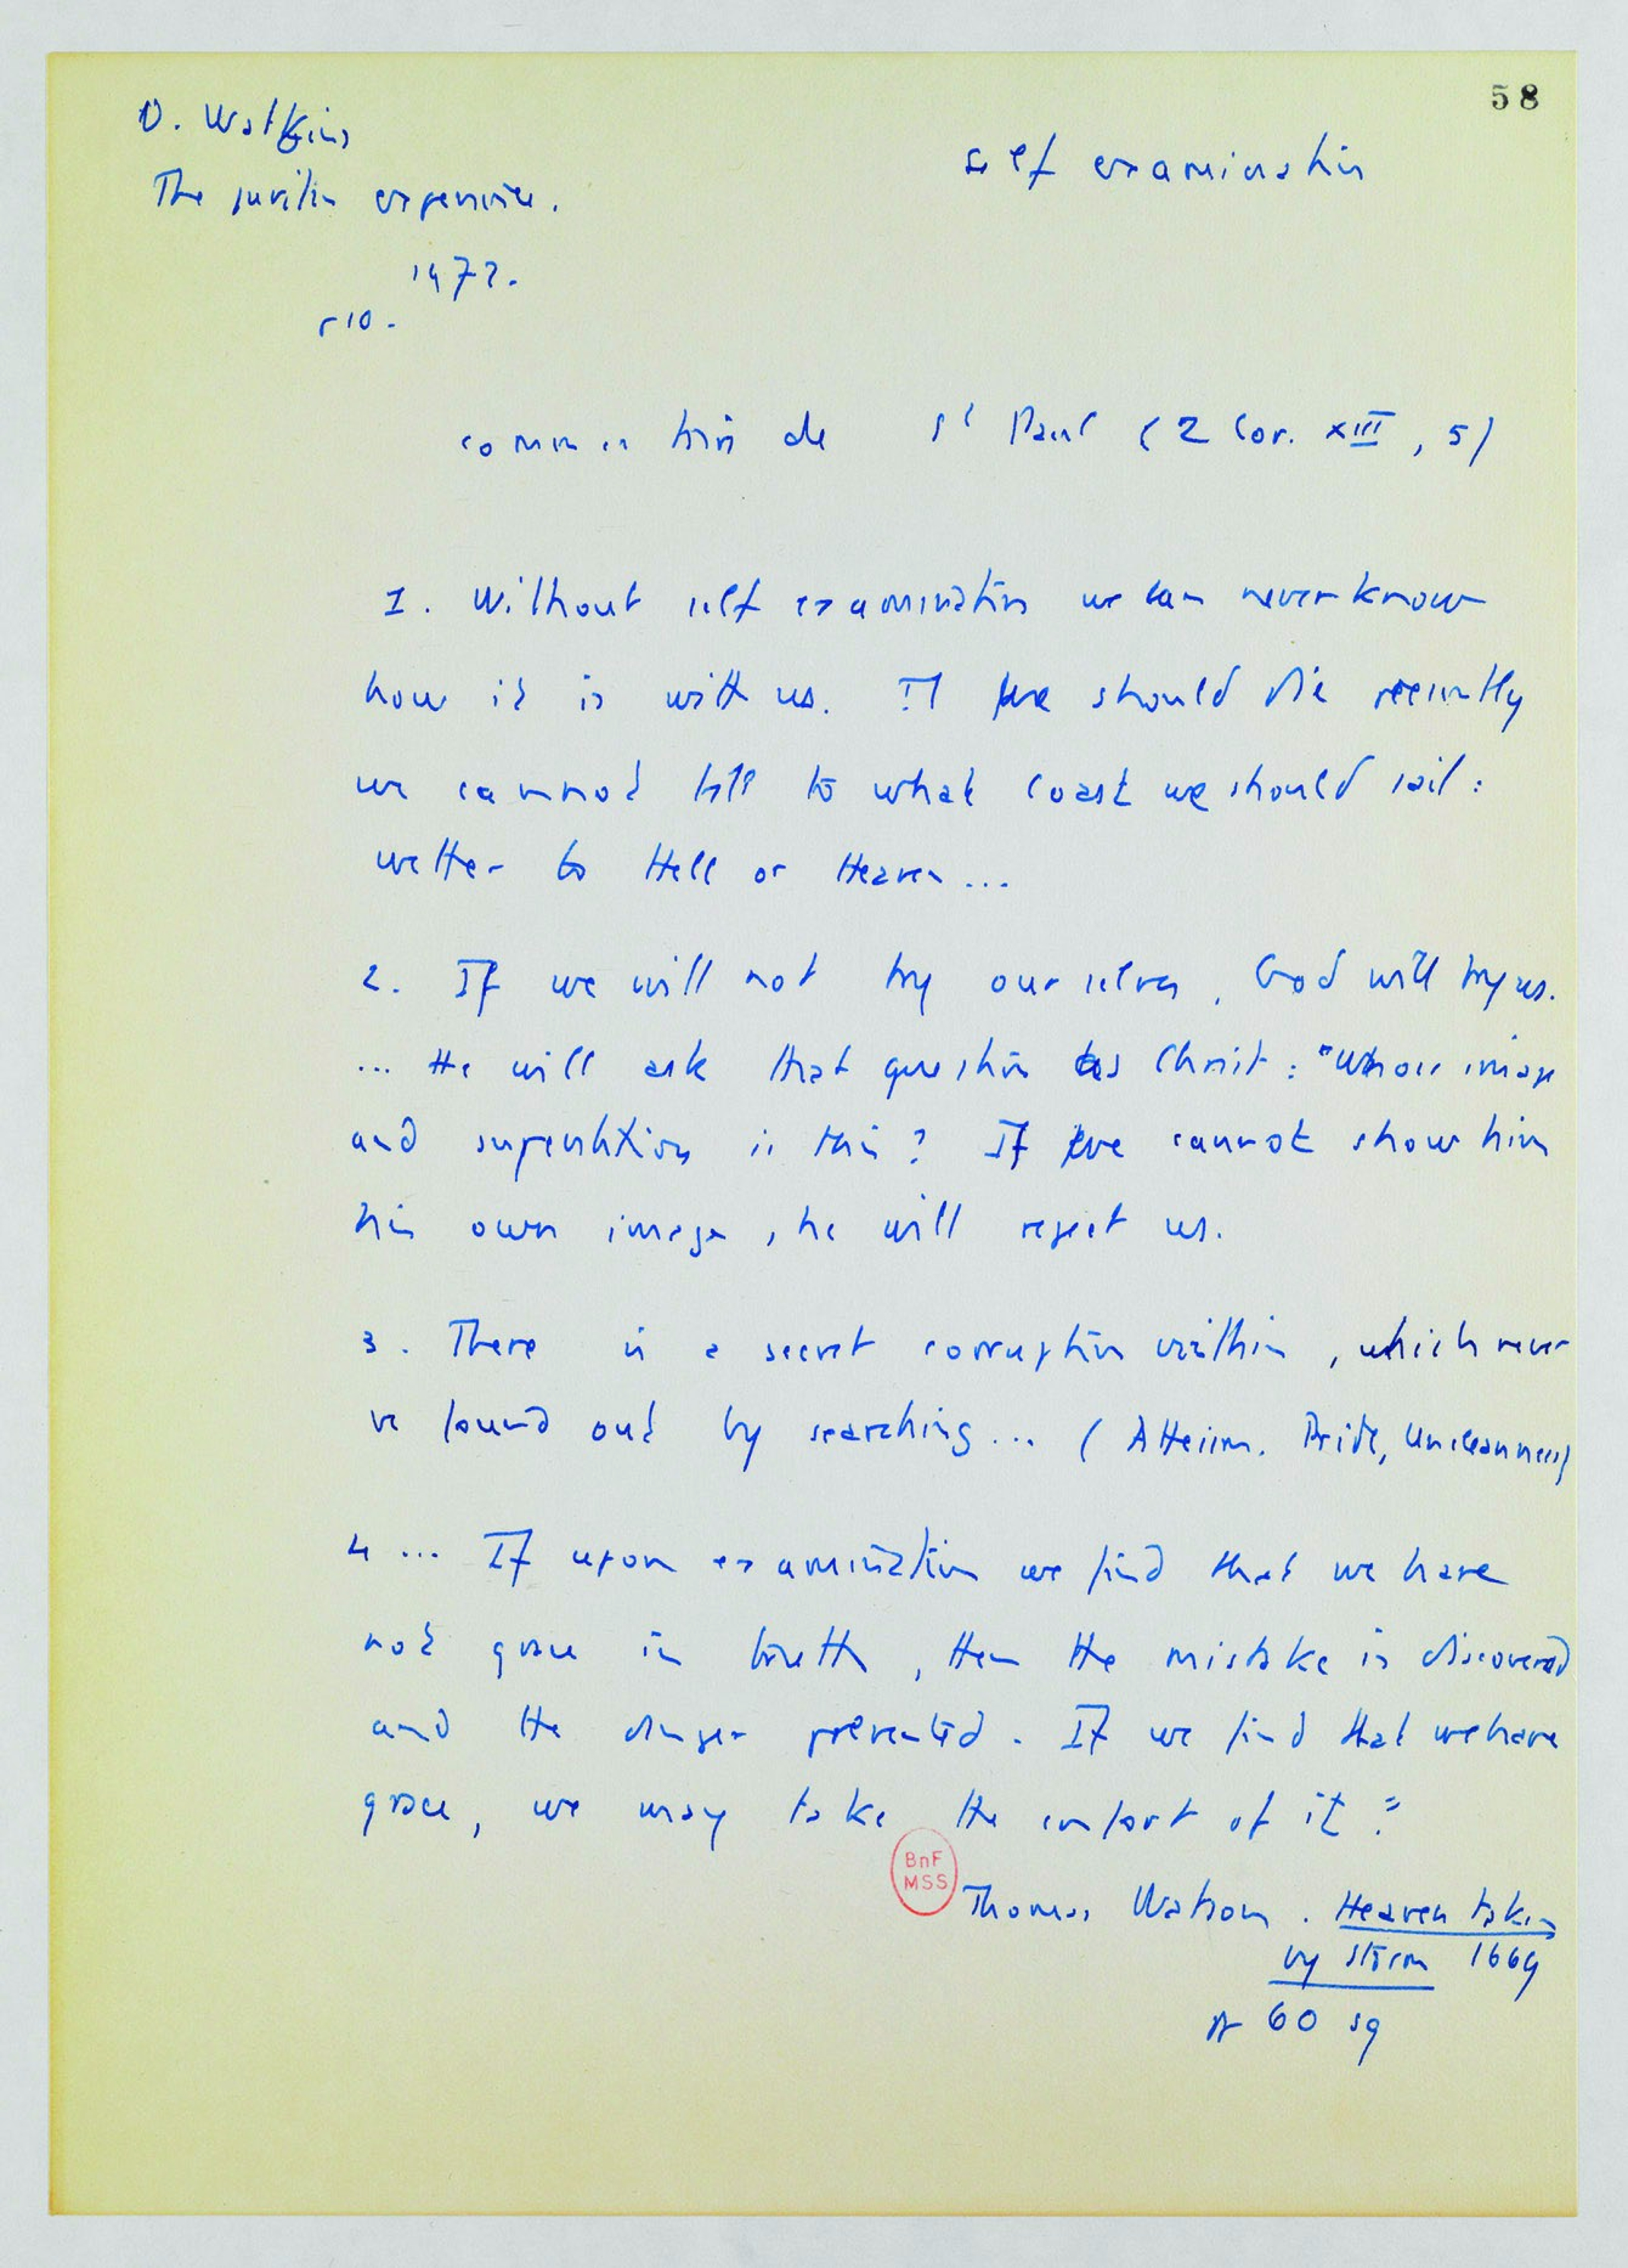 58
O. Watkins
self examination
The puritan experience.
1972.
p 10.
commentain de St Paul (2 Cor. XIII, 5)
1. Without self examination we can never know
how it is with us. If we should die presently
we cannot tell to what coast we should sail :
wether to Hell or Heaven ...
2. If we will not try ourselves, God will try us.
... He will ask that question as Christ : "Whose image
and superscription is this ? If we cannot show him
his own image, he will reject us.
3. There is a secret corruption within, which never
be found out by searching ... (Atheism. Pride, Uncleanness)
4 ... If upon examination we find that we have
not grace in truth, then the mistake is discovered
and the danger prevented. If we find that we have
grace, we may take the comfort of it."
BnF
MSS
Thomas Watson. Heaven taken
by storm 1669
p 60 sq